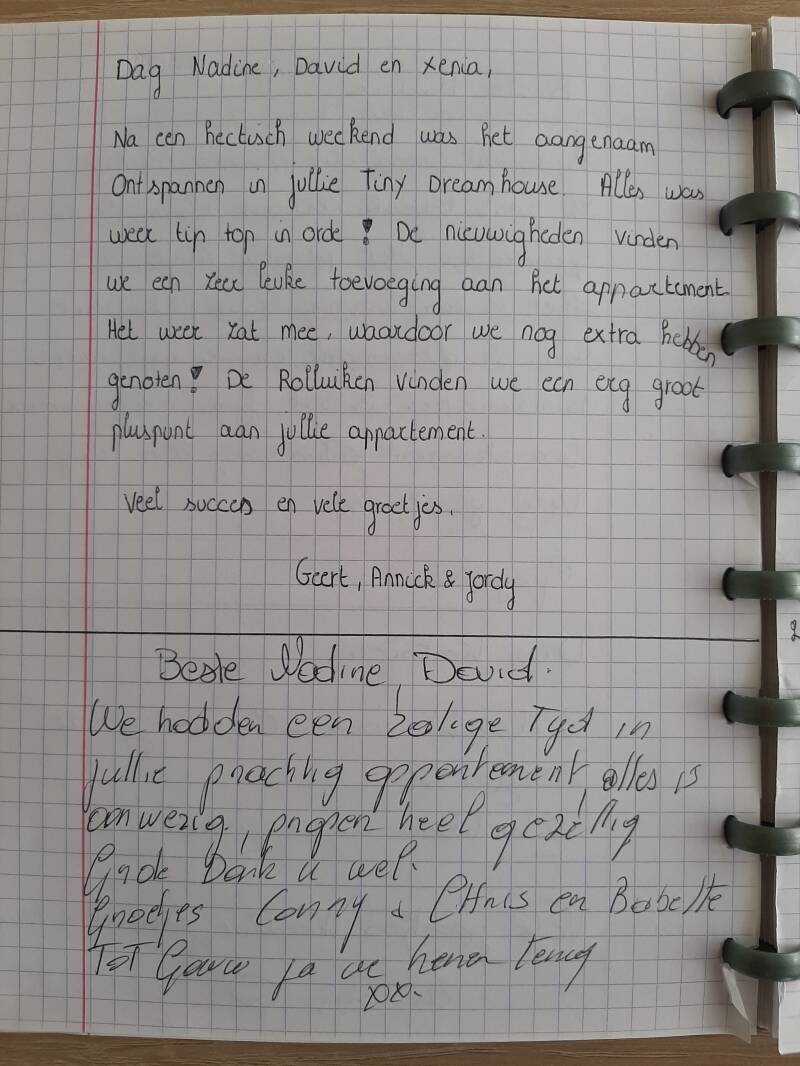 Dag Nadine, David en Xenia,
Na een hectisch weekend was het aangenaam
Ontspannen in jullie Tiny Dreamhouse. Alles was
weer tip top in orde! De nieuwigheden vinden
we een zeer leuke toevoeging aan het appartement
Het weer zat mee, waardoor we nog extra hebben
genoten! De Rolluiken vinden we een erg groot
pluspunt aan jullie appartement.
Veel succes en vele groetjes,
Geert, Annick & Jordy
Beste Nadine, David.
We hadden een zalige Tyd in
jullie prachtig appartement, alles is
aanwezig, en heel gezellig
Dank u wel.
Groetjes Conny & CHris en Babette
ToT Gauw ja we terug
xx.